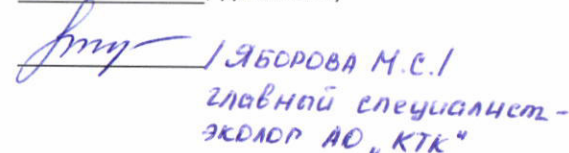 /ЯБОРОВА М.С./
главный специалист-
эколог АО „КТК"